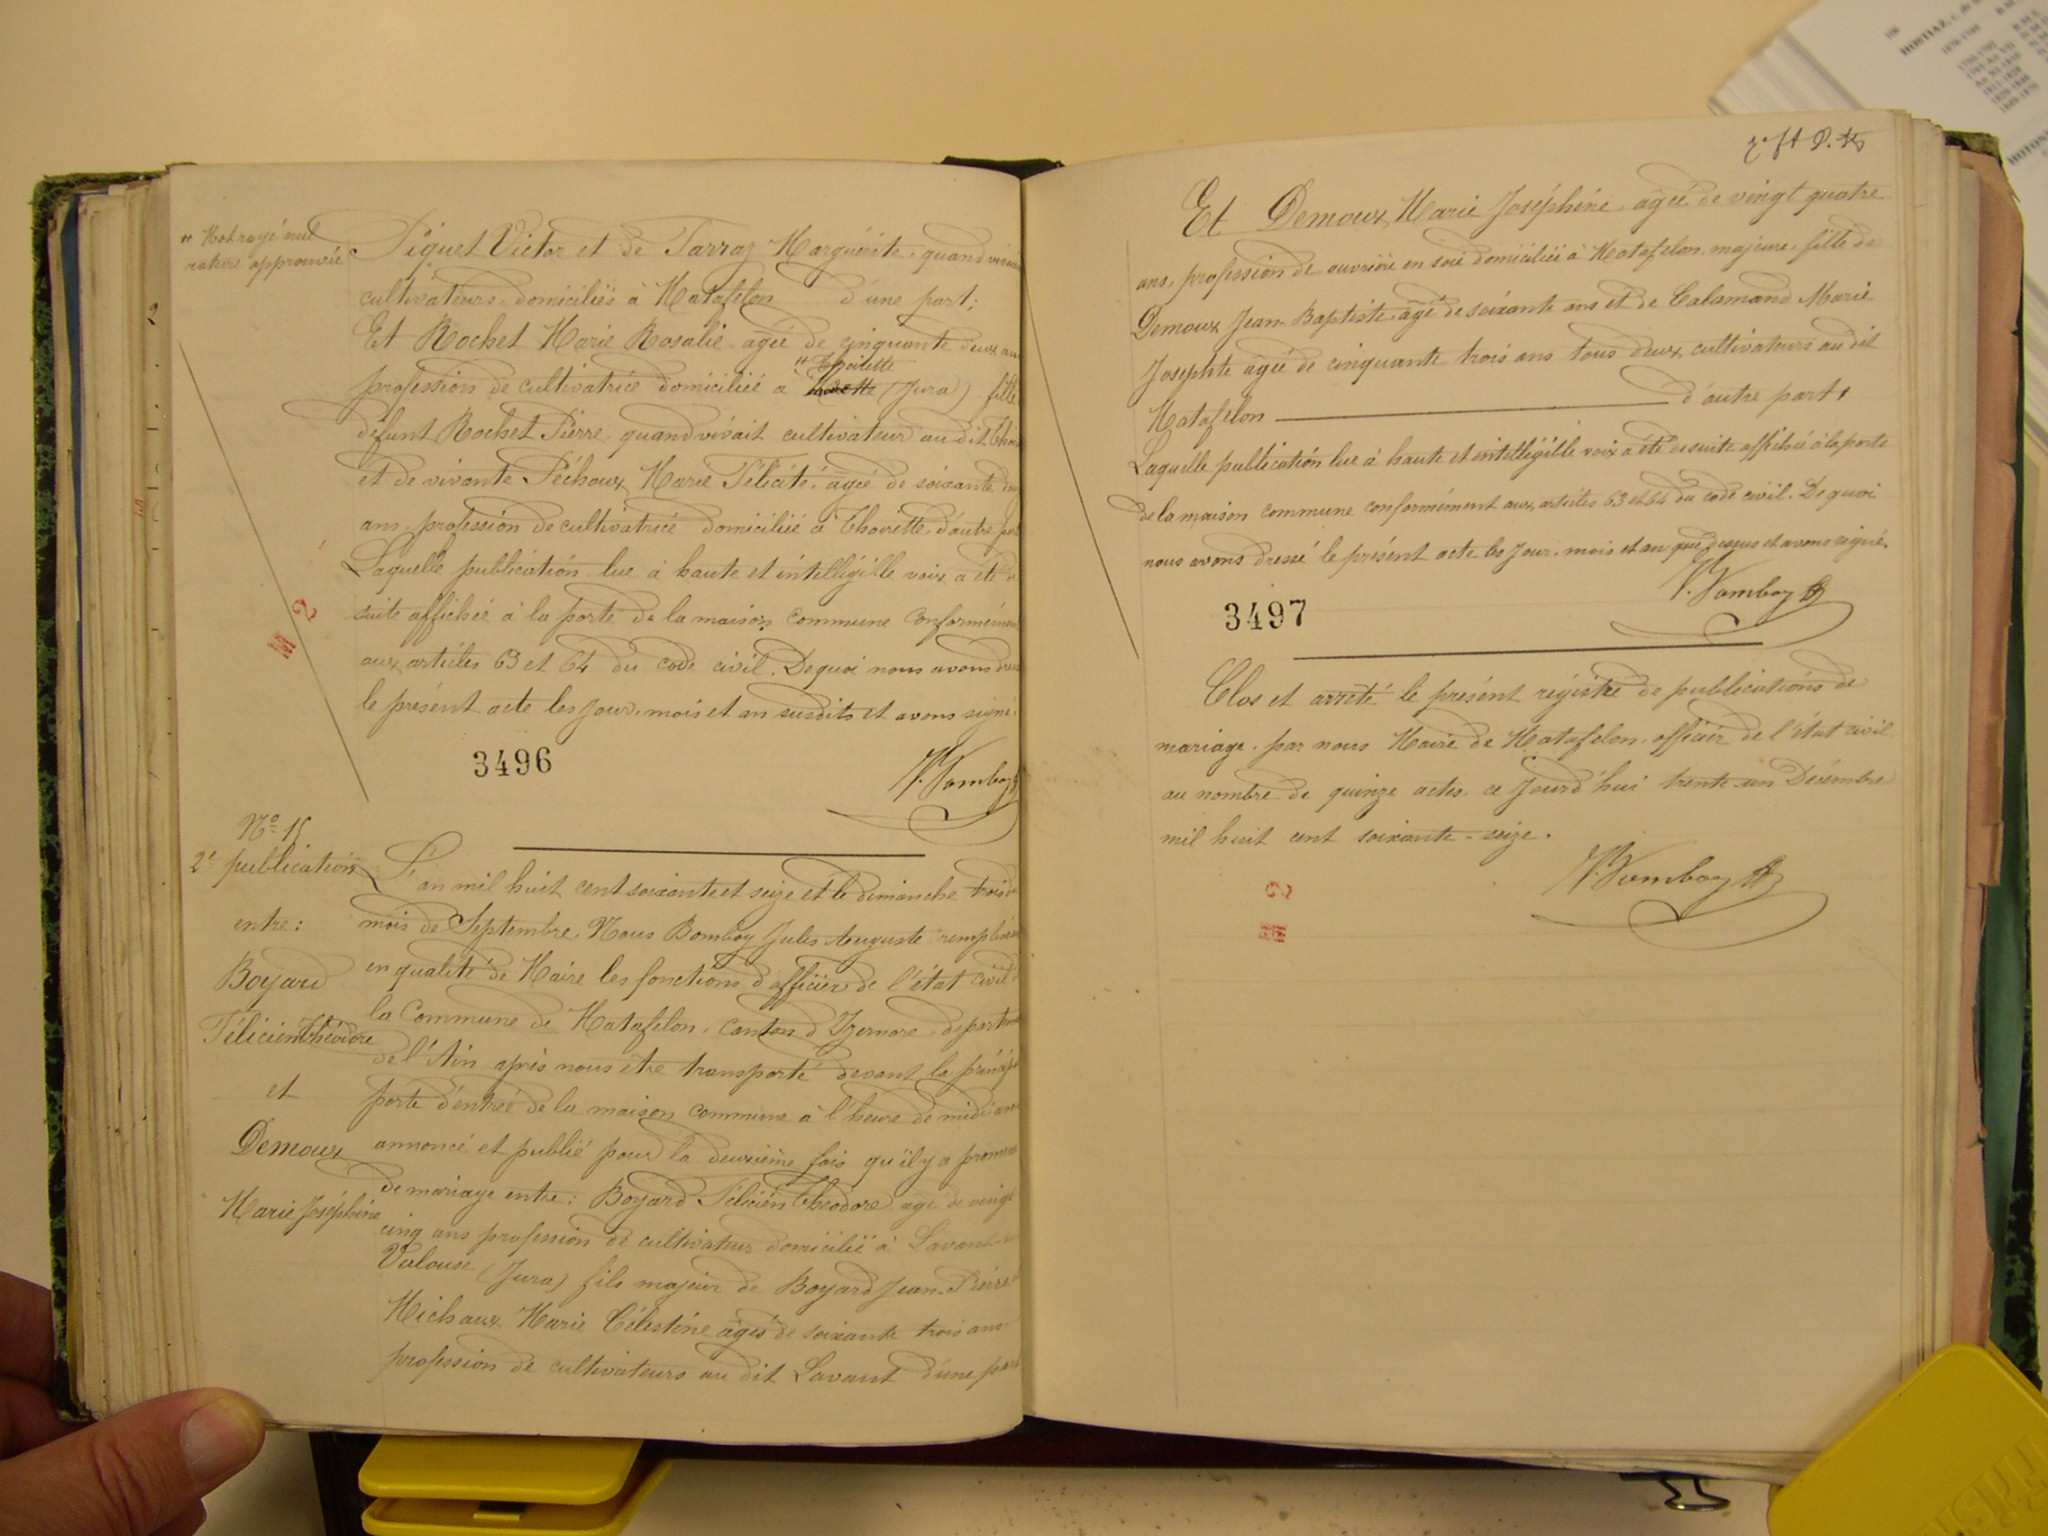 " Mot rayé nul
rature approuvée
Piquet Victor et de Tarraz Marguerite, quand vivaient
cultivateurs domiciliés à Matafelon d'une part;
Et Rochet Marie Rosalie, agée de cinquante deux ans
" Thoirette
profession de cultivatrice domiciliée à (Jura) fille
défunt Rochet Pierre, quand vivait cultivateur au dit Thoi
et de vivante Péchoux Marie Félicité, agée de soixante
ans, profession de cultivatrice domiciliée à Thoirette, d'autre part
Laquelle publication lue à haute et intelligible voix a été de
suite affichée à la porte de la maison commune conformément
aux articles 63 et 64 du code civil. De quoi nous avons dressé
le présent acte les jour, mois et an susdits et avons signé.
3496
J. Bomboy
No. 15
2e publication
entre:
Boyard
Félicien Théodore
et
Demoux
Marie Joséphine
L'an mil huit cent soixante et seize et le dimanche trois du
mois de Septembre, Nous Bomboy Jules Auguste remplissant
en qualité de Maire les fonctions d'officier de l'état civil de
la Commune de Matafelon, canton d'Izernore, département
de l'Ain après nous être transporté devant la principale
porte d'entrée de la maison commune à l'heure de midi avons
annoncé et publié pour la deuxième fois qu'il y a promesse
de mariage entre: Boyard Félicien Théodore agé de vingt
cinq ans profession de cultivateur domicilié à Lavant
Valouse (Jura) fils majeur de Boyard Jean-Pierre
Michaux Marie Célestine agés de soixante trois ans
profession de cultivateurs au dit Lavant d'une part
Et Demoux Marie Joséphine, agée de vingt quatre
ans, profession de ouvrière en soie domiciliée à Matafelon, majeure, fille de
Demoux Jean-Baptiste agé de soixante ans et de Calamand Marie
Josephte agée de cinquante trois ans tous deux cultivateurs au dit
Matafelon d'autre part,
Laquelle publication lue à haute et intelligible voix a été de suite affichée à la porte
de la maison commune conformément aux articles 63 et 64 du code civil. De quoi
nous avons dressé le présent acte les jour, mois et an que dessus et avons signé.
J. Bomboy
3497
Clos et arrêté le présent régistre de publications de
mariage, par nous Maire de Matafelon, officier de l'état civil
au nombre de quinze actes, ce jourd'hui trente-un Décembre
mil huit cent soixante-seize.
J. Bomboy